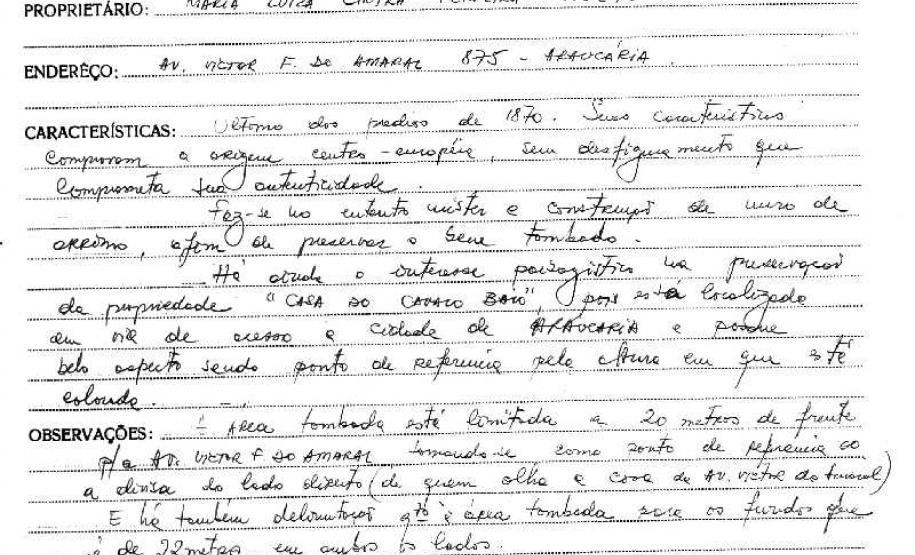 PROPRIETÁRIO: MARIA LUIZA
ENDERÊÇO: AV. VICTOR F. DO AMARAL 875 - ARAUCÁRIA
CARACTERÍSTICAS: Ultimo dos predios de 1870. Suas caracteristicas
comprovam a origem centro-européia, sem desfiguramento que
comprometa sua autenticidade.
Faz-se no entanto mister a construção de muro de
arrimo, afim de preservar o bem tombado.
Há ainda o interesse paisagistico na preservação
da propriedade "CASA DO CAVALO BAIO" pois está localizada
em via de acesso a cidade de ARAUCARIA e possue
belo aspecto sendo ponto de referencia pela altura em que stá
colocada.
OBSERVAÇÕES: - AREA tombada está limitada a 20 metros de frente
p/a AV. VICTOR F DO AMARAL tomando-se como ponto de referencia
a divisa do lado direito (de quem olha a casa da AV. VICTOR do Amaral)
E há também delimitação qto a área tombada para os fundos que
é de 22 metros em ambos os lados.